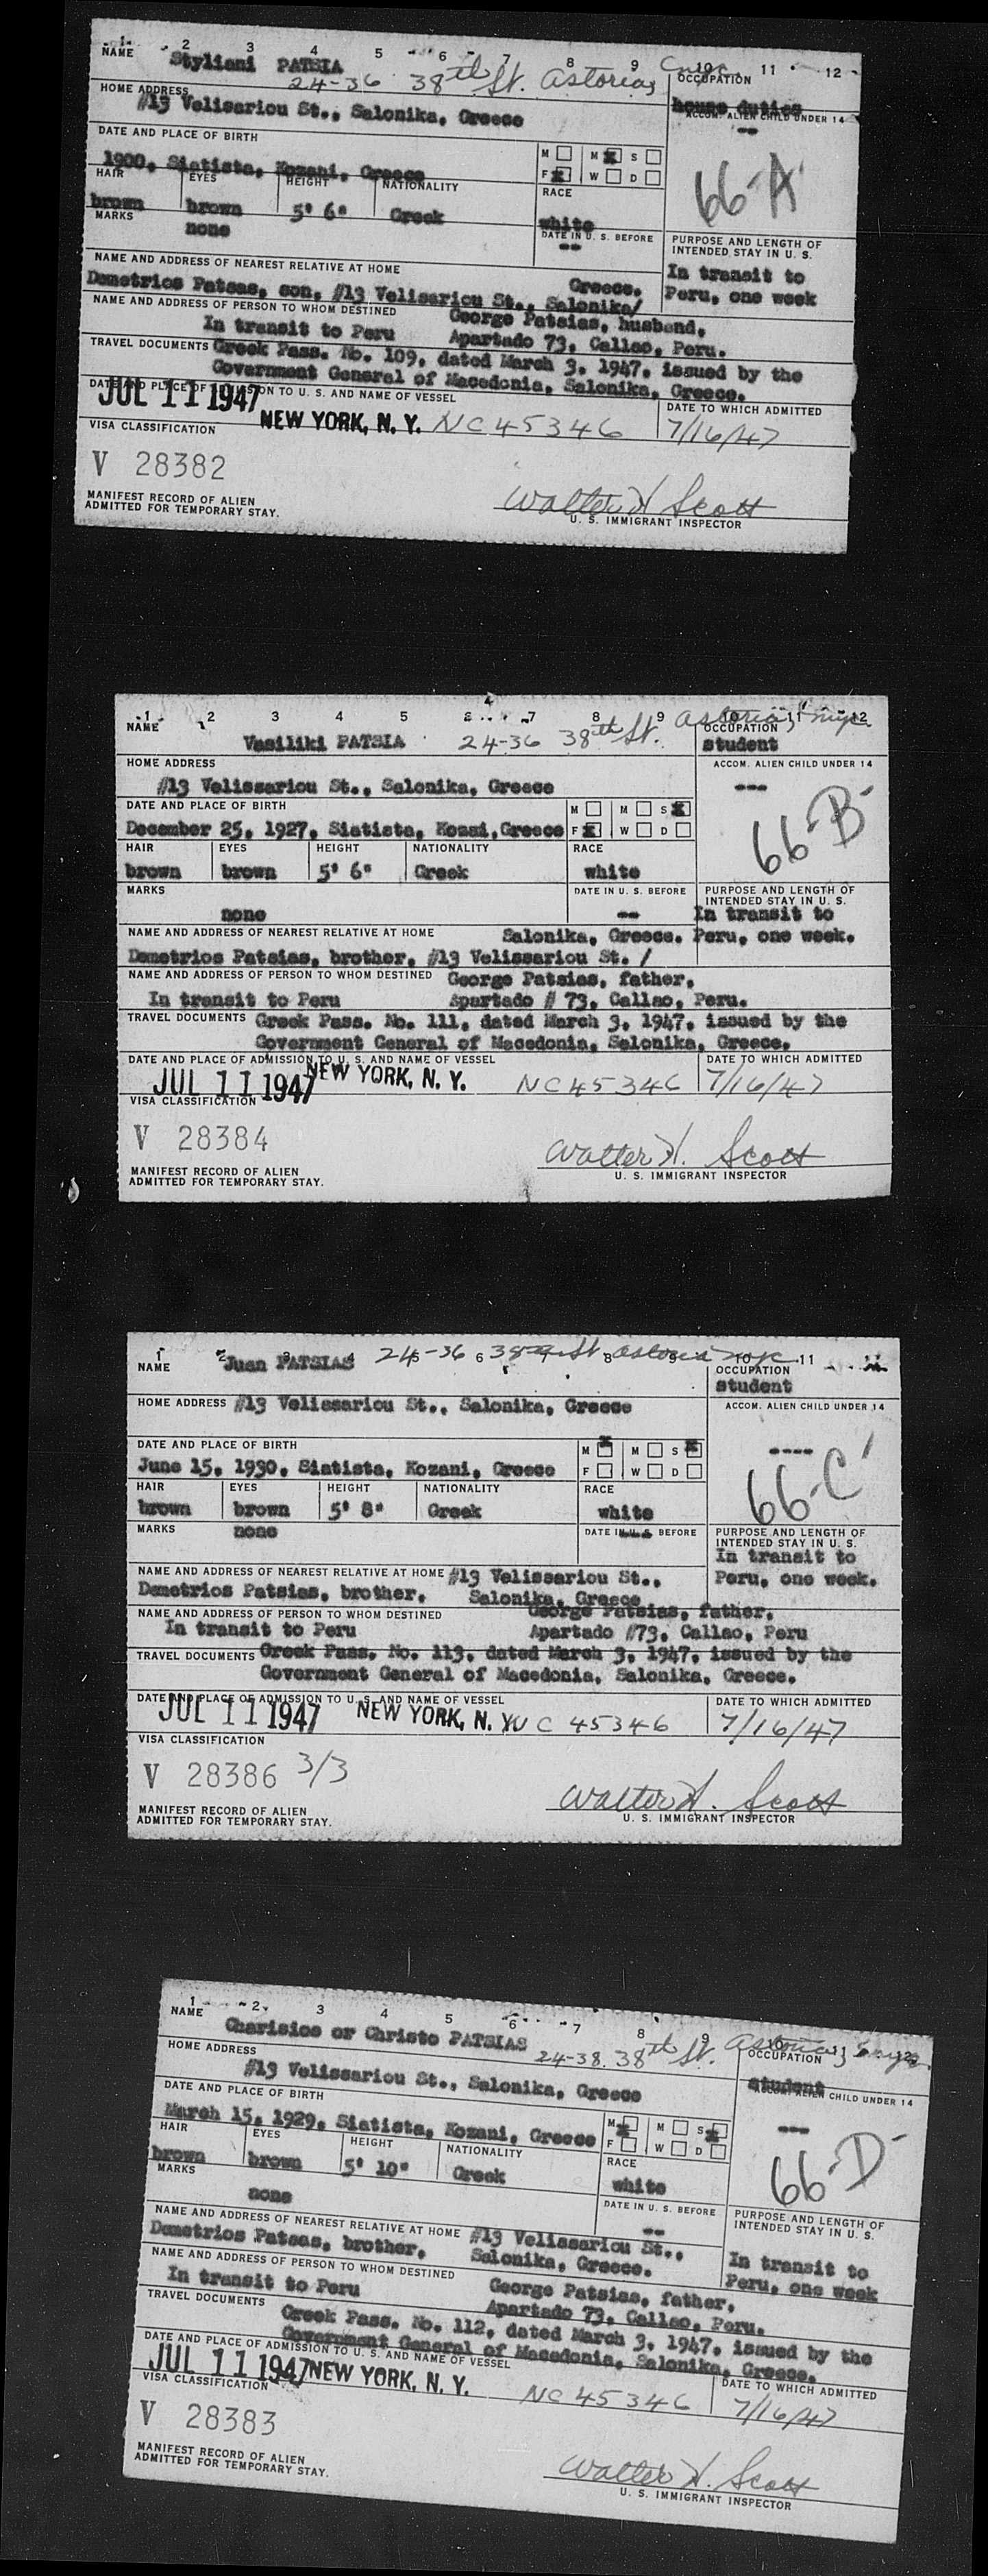 1 2 3 4 5 6 7 8 9 10 11 12
NAME Styliani PATSIA 24-36 38th St. Astoria, nyc
OCCUPATION
house duties
HOME ADDRESS
#13 Velisariou St., Salonika, Greece
ACCOM. ALIEN CHILD UNDER 14
--
DATE AND PLACE OF BIRTH
M M X S
1900, Siatista, Kozani, Greece
F X W D
66-A
HAIR EYES HEIGHT NATIONALITY RACE
brown brown 5' 6" Greek white
MARKS
none
DATE IN U. S. BEFORE
--
PURPOSE AND LENGTH OF
INTENDED STAY IN U. S.
In transit to
Peru, one week
NAME AND ADDRESS OF NEAREST RELATIVE AT HOME
Greece.
Demetrios Patsas, son, #13 Velisariou St., Salonika/
NAME AND ADDRESS OF PERSON TO WHOM DESTINED George Patsias, husband,
In transit to Peru Apartado 73, Callao, Peru.
TRAVEL DOCUMENTS Greek Pass. No. 109, dated March 3, 1947, issued by the
Government General of Macedonia, Salonika, Greece.
DATE AND PLACE OF ADMISSION TO U. S. AND NAME OF VESSEL
DATE TO WHICH ADMITTED
JUL 11 1947 NEW YORK, N. Y. NC45346 7/16/47
VISA CLASSIFICATION
V 28382
MANIFEST RECORD OF ALIEN
ADMITTED FOR TEMPORARY STAY.
Walter H Scott
U. S. IMMIGRANT INSPECTOR
1 2 3 4 5 6 7 8 9 10 11 12
NAME Vasiliki PATSIA 24-36 38th St. Astoria, nyc
OCCUPATION
student
HOME ADDRESS
#13 Velissariou St., Salonika, Greece
ACCOM. ALIEN CHILD UNDER 14
---
DATE AND PLACE OF BIRTH
M M S X
December 25, 1927, Siatista, Kozani, Greece
F X W D
66-B
HAIR EYES HEIGHT NATIONALITY RACE
brown brown 5' 6" Greek white
MARKS
none
DATE IN U. S. BEFORE
--
PURPOSE AND LENGTH OF
INTENDED STAY IN U. S.
In transit to
Peru, one week.
NAME AND ADDRESS OF NEAREST RELATIVE AT HOME Salonika, Greece.
Demetrios Patsias, brother, #13 Velissariou St. /
NAME AND ADDRESS OF PERSON TO WHOM DESTINED George Patsias, father,
In transit to Peru Apartado # 73, Callao, Peru.
TRAVEL DOCUMENTS Greek Pass. No. 111, dated March 3, 1947, issued by the
Government General of Macedonia, Salonika, Greece.
DATE AND PLACE OF ADMISSION TO U. S. AND NAME OF VESSEL
DATE TO WHICH ADMITTED
JUL 11 1947 NEW YORK, N. Y. NC45346 7/16/47
VISA CLASSIFICATION
V 28384
MANIFEST RECORD OF ALIEN
ADMITTED FOR TEMPORARY STAY.
Walter H. Scott
U. S. IMMIGRANT INSPECTOR
1 2 3 4 5 6 7 8 9 10 11
NAME Juan PATSIAS 24-36 38th St Astoria nyc
OCCUPATION
student
HOME ADDRESS #13 Velissariou St., Salonika, Greece
ACCOM. ALIEN CHILD UNDER 14
----
DATE AND PLACE OF BIRTH
M X M S X
June 15, 1930, Siatista, Kozani, Greece
F W D
66-C
HAIR EYES HEIGHT NATIONALITY RACE
brown brown 5' 8" Greek white
MARKS none
DATE IN U. S. BEFORE
PURPOSE AND LENGTH OF
INTENDED STAY IN U. S.
In transit to
Peru, one week.
NAME AND ADDRESS OF NEAREST RELATIVE AT HOME #13 Velissariou St.,
Demetrios Patsias, brother, Salonika, Greece
NAME AND ADDRESS OF PERSON TO WHOM DESTINED George Patsias, father,
In transit to Peru Apartado #73, Callao, Peru
TRAVEL DOCUMENTS Greek Pass. No. 113, dated March 3, 1947, issued by the
Government General of Macedonia, Salonika, Greece.
DATE AND PLACE OF ADMISSION TO U. S. AND NAME OF VESSEL
DATE TO WHICH ADMITTED
JUL 11 1947 NEW YORK, N. Y. NC 45346 7/16/47
VISA CLASSIFICATION
V 28386 3/3
MANIFEST RECORD OF ALIEN
ADMITTED FOR TEMPORARY STAY.
Walter H. Scott
U. S. IMMIGRANT INSPECTOR
1 2 3 4 5 6 7 8 9 10 12
NAME Charisios or Christo PATSIAS 24-38. 38th St. Astoria, nyc
OCCUPATION
student
HOME ADDRESS
#13 Velissariou St., Salonika, Greece
ACCOM. ALIEN CHILD UNDER 14
---
DATE AND PLACE OF BIRTH
M X M S X
March 15, 1929, Siatista, Kozani, Greece
F W D
66-D
HAIR EYES HEIGHT NATIONALITY RACE
brown brown 5' 10" Greek white
MARKS
none
DATE IN U. S. BEFORE
--
PURPOSE AND LENGTH OF
INTENDED STAY IN U. S.
In transit to
Peru, one week
NAME AND ADDRESS OF NEAREST RELATIVE AT HOME #13 Velissariou St.,
Demetrios Patsas, brother, Salonika, Greece.
NAME AND ADDRESS OF PERSON TO WHOM DESTINED George Patsias, father,
In transit to Peru Apartado 73, Callao, Peru.
TRAVEL DOCUMENTS Greek Pass. No. 112, dated March 3, 1947, issued by the
Government General of Macedonia, Salonika, Greece.
DATE AND PLACE OF ADMISSION TO U. S. AND NAME OF VESSEL
DATE TO WHICH ADMITTED
JUL 11 1947 NEW YORK, N. Y. NC45346 7/16/47
VISA CLASSIFICATION
V 28383
MANIFEST RECORD OF ALIEN
ADMITTED FOR TEMPORARY STAY.
Walter H. Scott
U. S. IMMIGRANT INSPECTOR